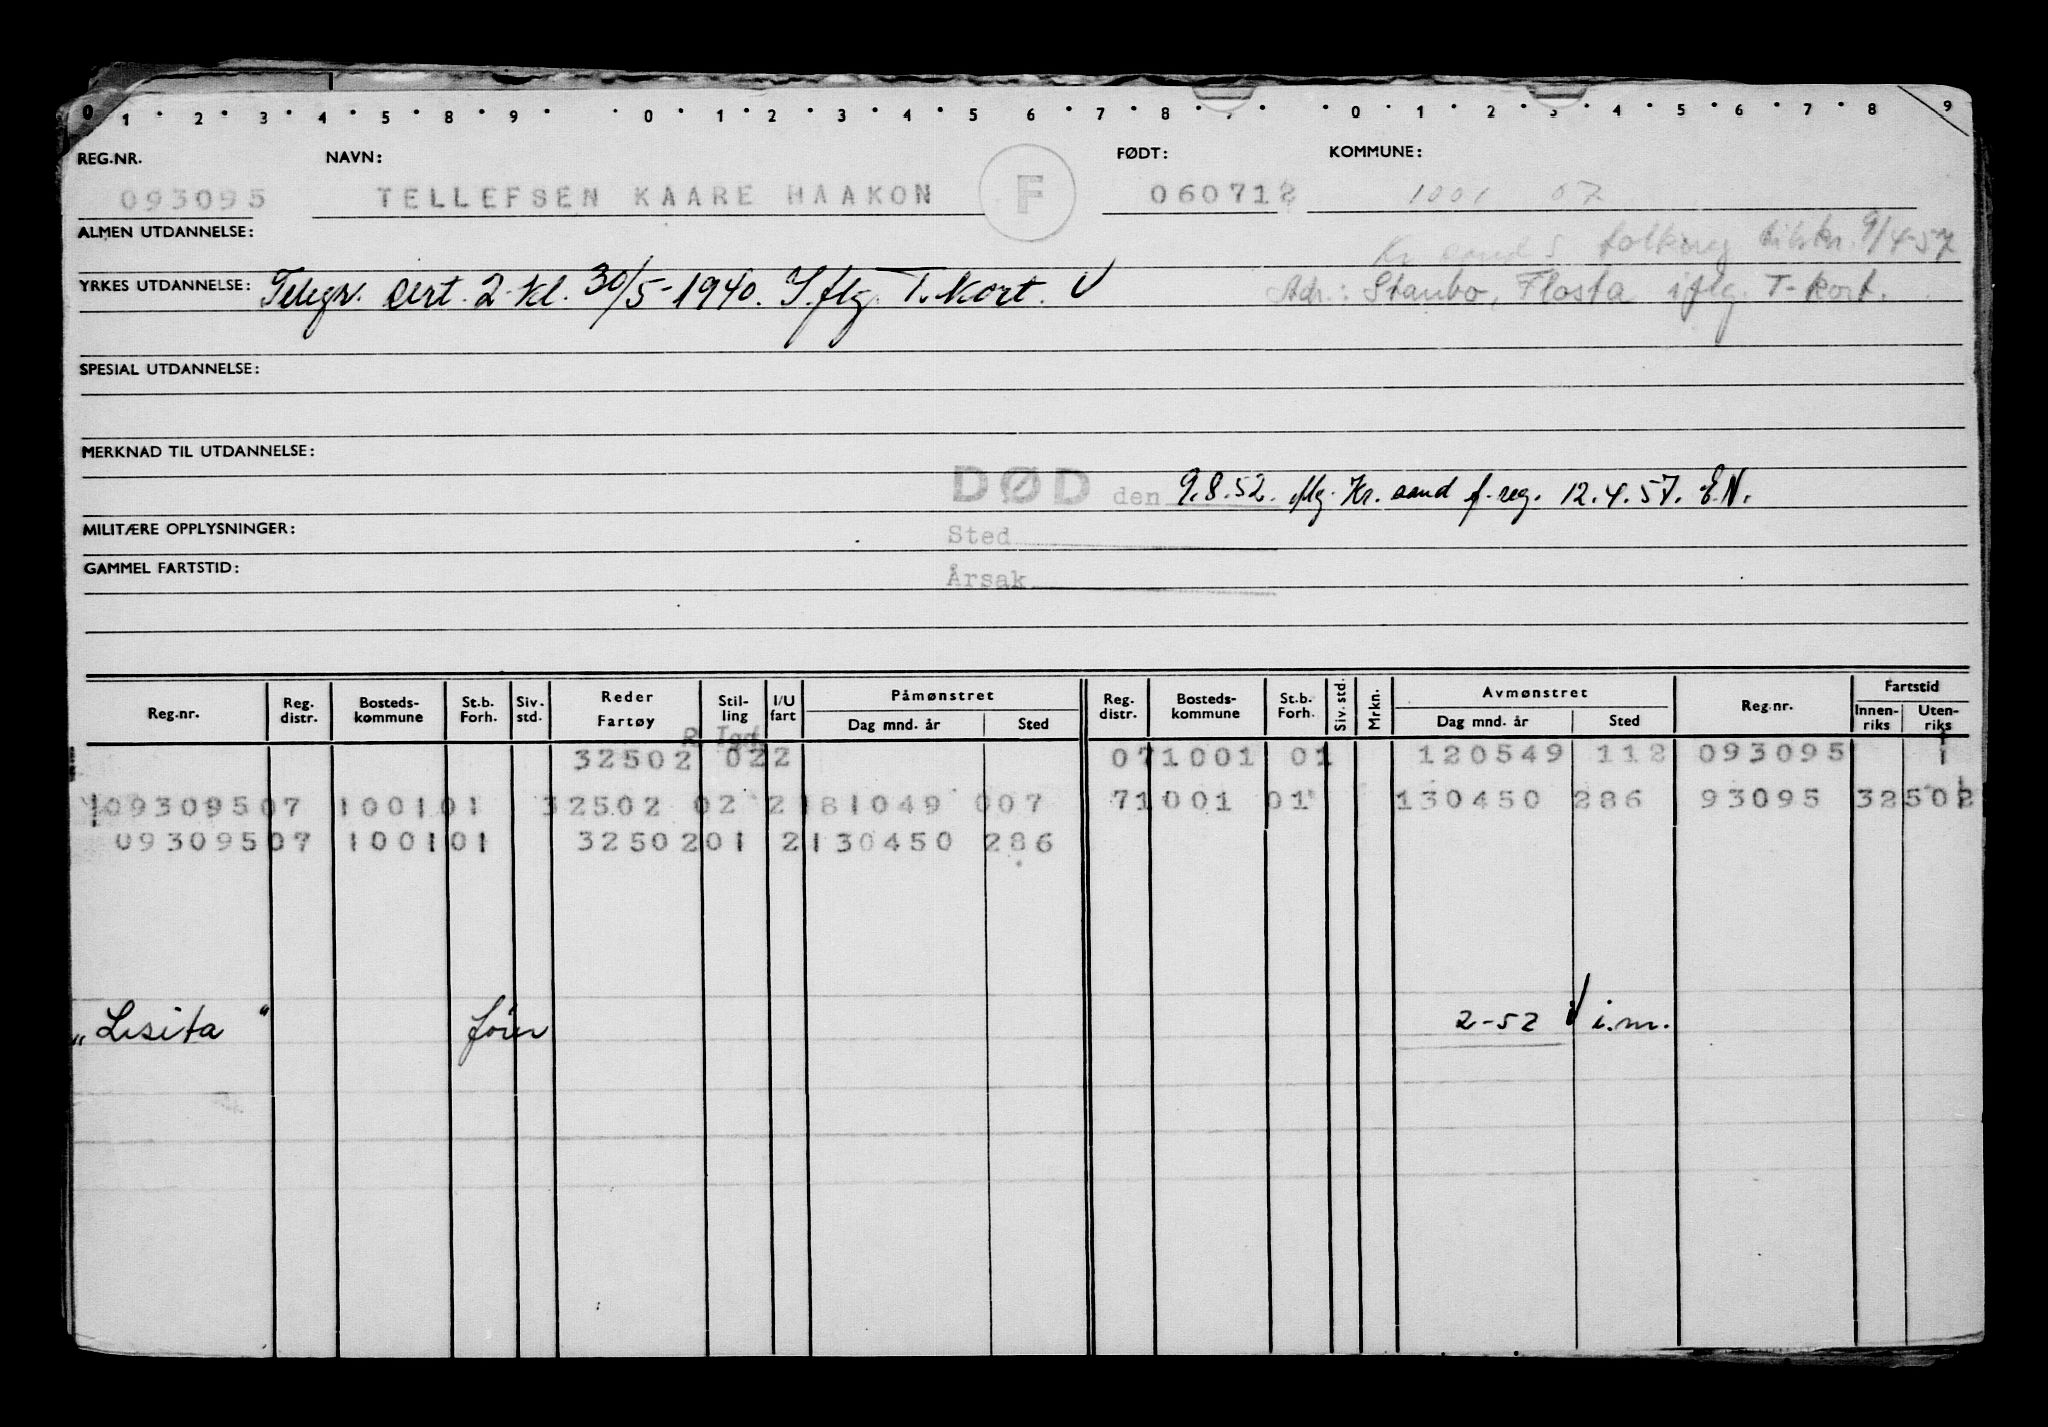 0 1 2 3 4 5 8 9 0 1 2 3 4 5 6 7 8 0 1 2 3 4 5 6 7 8 9
REG.NR. NAVN: FØDT: KOMMUNE:
093095 TELLEFSEN KAARE HAAKON F 060712 1001 07
ALMEN UTDANNELSE: Kr.sand S folkereg tilskr. 9/4-57
YRKES UTDANNELSE: Telegr. sert. 2. kl. 30/5-1940. I.flg. T.kort. V Adr.: Staubo, Flosta iflg. T-kort.
SPESIAL UTDANNELSE:
MERKNAD TIL UTDANNELSE:
DØD den 9.8.52. iflg. Kr.sand f.reg. 12.4.57. E.N.
MILITÆRE OPPLYSNINGER: Sted
GAMMEL FARTSTID: Årsak
Reg.nr. Reg. distr. Bosteds-kommune St.b. Forh. Siv. std. Reder Fartøy Stil-ling I/U fart Påmønstret Dag mnd. år Sted Reg. distr. Bosteds-kommune St.b. Forh. Siv. std. Mrkn. Avmønstret Dag mnd. år Sted Reg.nr. Fartstid Innen-riks Uten-riks
32502 022 071001 01 120549 112 093095
09309507 100101 32502 02 2181049 007 71001 01 130450 286 93095 32502
09309507 100101 3250201 2130450 286
"Lisita" fører 2-52 V i.m.